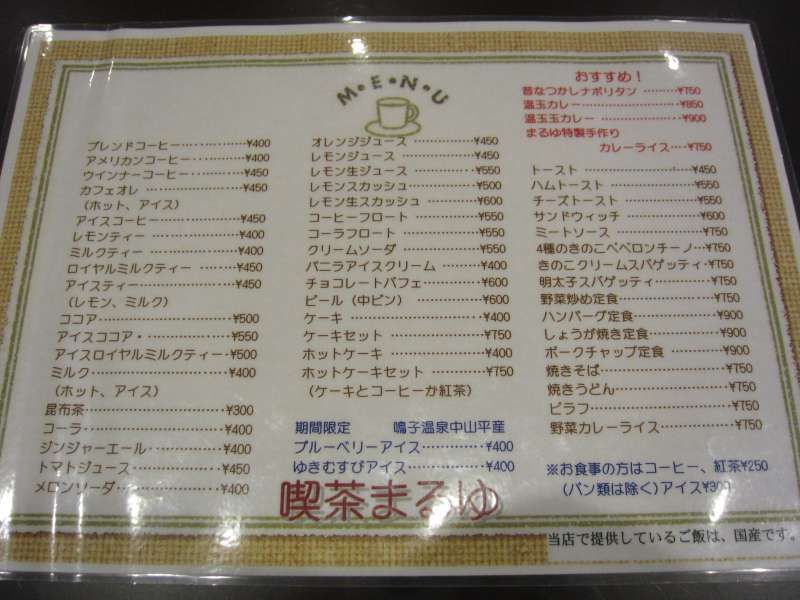 M・E・N・U
ブレンドコーヒー…………¥400
アメリカンコーヒー………¥400
ウインナーコーヒー………¥450
カフェオレ…………¥450
(ホット、アイス)
アイスコーヒー…………¥450
レモンティー…………¥400
ミルクティー…………¥400
ロイヤルミルクティー………¥450
アイスティー…………¥450
(レモン、ミルク)
ココア…………¥500
アイスココア・…………¥550
アイスロイヤルミルクティー・¥500
ミルク…………¥400
(ホット、アイス)
昆布茶…………¥300
コーラ…………¥400
ジンジャーエール…………¥400
トマトジュース…………¥450
メロンソーダ…………¥400
オレンジジュース…………¥450
レモンジュース…………¥450
レモン生ジュース…………¥550
レモンスカッシュ…………¥500
レモン生スカッシュ………¥600
コーヒーフロート…………¥550
コーラフロート…………¥550
クリームソーダ…………¥550
バニラアイスクリーム………¥400
チョコレートパフェ…………¥600
ビール(中ビン)…………¥600
ケーキ…………¥400
ケーキセット…………¥750
ホットケーキ…………¥400
ホットケーキセット…………¥750
(ケーキとコーヒーか紅茶)
期間限定 鳴子温泉中山平産
ブルーベリーアイス…………¥400
ゆきむすびアイス…………¥400
喫茶まるゆ
おすすめ!
昔なつかしナポリタン………¥750
温玉カレー…………¥850
温玉玉カレー…………¥900
まるゆ特製手作り
カレーライス….¥750
トースト…………¥450
ハムトースト…………¥550
チーズトースト…………¥550
サンドウィッチ…………¥600
ミートソース…………¥750
4種のきのこペペロンチーノ…¥750
きのこクリームスパゲッティ・¥750
明太子スパゲッティ…………¥750
野菜炒め定食…………¥750
ハンバーグ定食…………¥900
しょうが焼き定食…………¥900
ポークチャップ定食…………¥900
焼きそば…………¥750
焼きうどん…………¥750
ピラフ…………¥750
野菜カレーライス…………¥750
※お食事の方はコーヒー、紅茶¥250
(パン類は除く)アイス¥300
当店で提供しているご飯は、国産です。